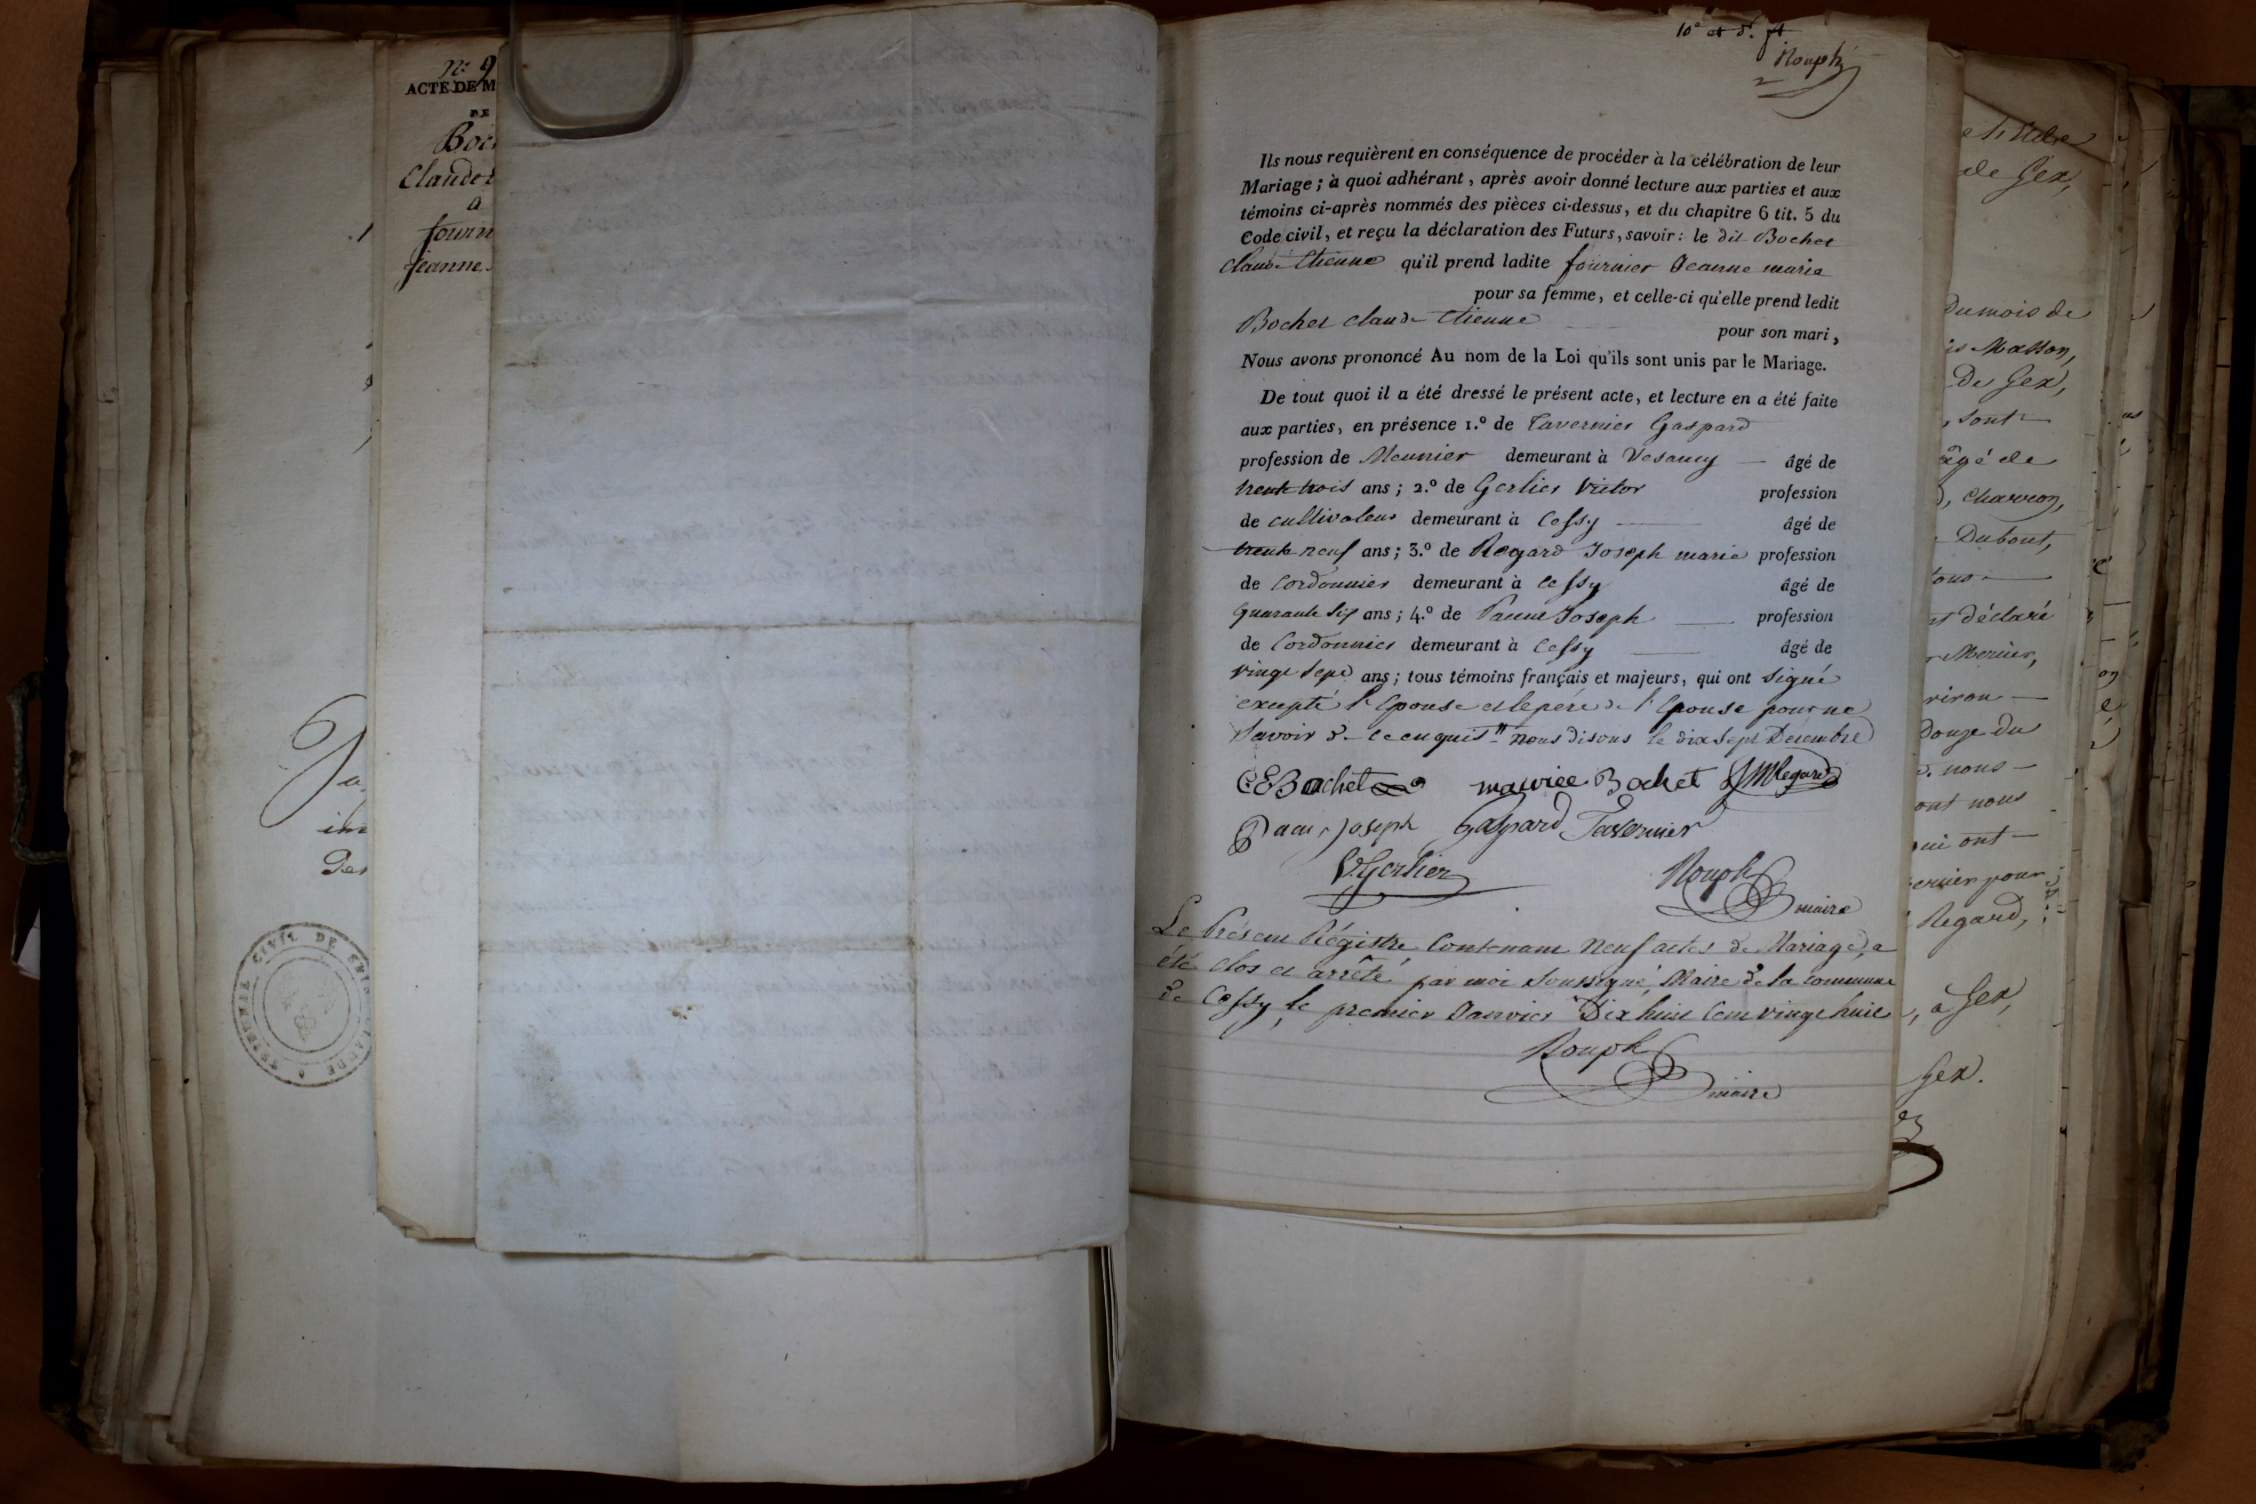 N.º 9
ACTE DE M
DE
Boc
Claude
a
fourn
jeanne
10e et d. ft
Rouph
Ils nous requièrent en conséquence de procéder à la célébration de leur
Mariage ; à quoi adhérant, après avoir donné lecture aux parties et aux
témoins ci-après nommés des pièces ci-dessus, et du chapitre 6 tit. 5 du
Code civil, et reçu la déclaration des Futurs, savoir : le dit Bochet
Claude Etienne qu'il prend ladite fournier Jeanne marie
pour sa femme, et celle-ci qu'elle prend ledit
Bochet Claude Etienne pour son mari,
Nous avons prononcé Au nom de la Loi qu'ils sont unis par le Mariage.
De tout quoi il a été dressé le présent acte, et lecture en a été faite
aux parties, en présence 1.º de Tavernier Gaspard
profession de Meunier demeurant à Vesancy âgé de
trente trois ans ; 2.º de Gerlier Victor profession
de cultivateur demeurant à Cessy âgé de
trente neuf ans ; 3.º de Regard Joseph marie profession
de Cordonnier demeurant à Cessy âgé de
quarante six ans ; 4.º de Joseph profession
de Cordonnier demeurant à Cessy âgé de
vingt sept ans ; tous témoins français et majeurs, qui ont signé
excepté l'Epouse et le père de l'Epouse pour ne
savoir de ce enquis nous disons le dix sept Decembre
CE Bochet maurice Bochet JM Regard
Joseph Gaspard Tavernier
V. Gerlier Rouph
maire
Le Présent Régistre, Contenant neuf actes de Mariage, a
été clos et arrêté par moi soussigné, Maire de la commune
de Cessy, le premier Janvier Dix huit Cent vingt huit
Rouph
maire
de Gex,
Dumois de
is Masson,
De Gex,
, sont
âgé de
, charron,
Dubout,
tous
t déclaré
Mercier,
viron
douze du
nous
ont nous
ui ont
ercier pour
Regard,
, à Gex,
Gex.
TRIBUNAL CIVIL DE